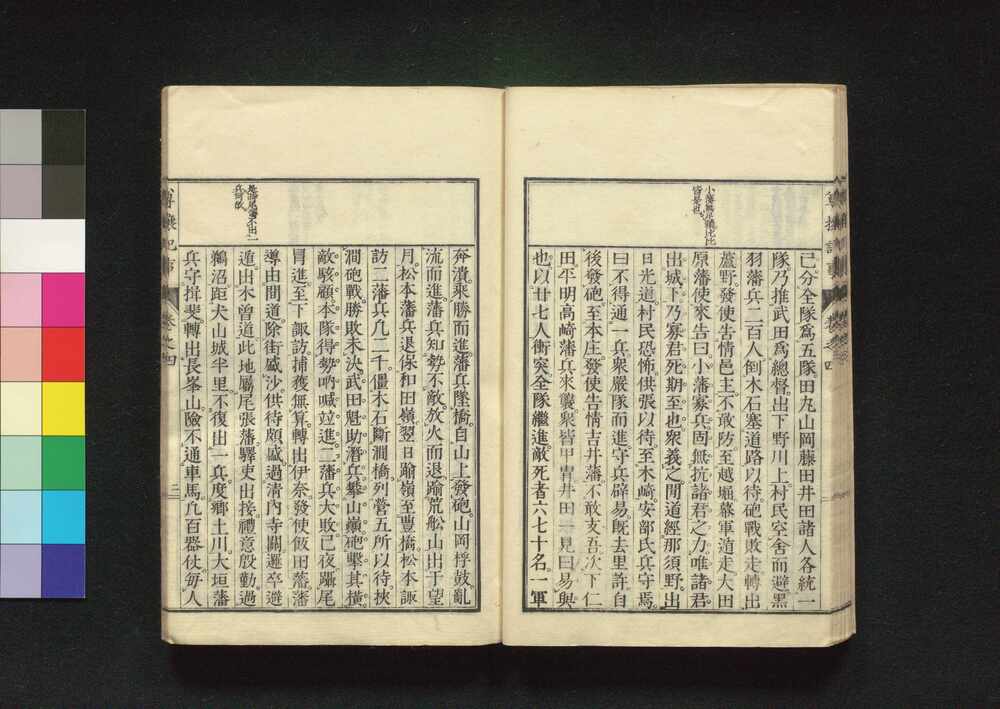 小藩無足穢比比
皆是也
已分全隊爲五隊田丸山岡藤田井田諸人各統一
隊乃推武田爲總督出下野川上村民空舍而避黑
羽藩兵二百人倒木石塞道路以待砲戰敗走轉出
蘆野發使告情邑主不敢防至越堀幕軍逃走大田
原藩使來告曰小藩寡兵固無抗諸君之力唯諸君
出城下乃寡君死期至也衆義之間道經那須野出
日光道村民恐怖供張以待至木崎安部氏兵守焉
曰不得通一兵衆嚴隊而進守兵辟易旣去里許自
後發砲至本庄發使告情吉井藩不敢支吾次下仁
田平明高崎藩兵來襲衆皆甲冑井田一見曰易與
也以廿七人衝突全隊繼進敵死者六七十名一軍
尊攘記事
卷之四
奔潰乘勝而進藩兵墜橋自山上發砲山岡桴鼓亂
流而進藩兵知勢不敵放火而退踰荒船山出于望
月松本藩兵退保和田嶺翌日踰嶺至豐橋松本諏
訪二藩兵凢二千偃木石斷澗橋列營五所以待挾
澗砲戰勝敗未決武田魁助潛兵攀山巓砲擊其橫
敵駭顧本隊得勢吶喊竝進二藩兵大敗已夜躡尾
冐進至下諏訪捕獲無算轉出伊奈發使飯田藩藩
導由間道除街盛沙供待頗盛過淸內寺關邏卒避
逃出木曾道此地屬尾張藩驛吏出接禮意殷勤過
鵜沼距犬山城半里不復出一兵度鄕土川大垣藩
兵守揖斐轉出長峯山險不通車馬凢百器仗每人
是諸尾藩不出一
兵何哉
尊攘紀事
卷之四
二